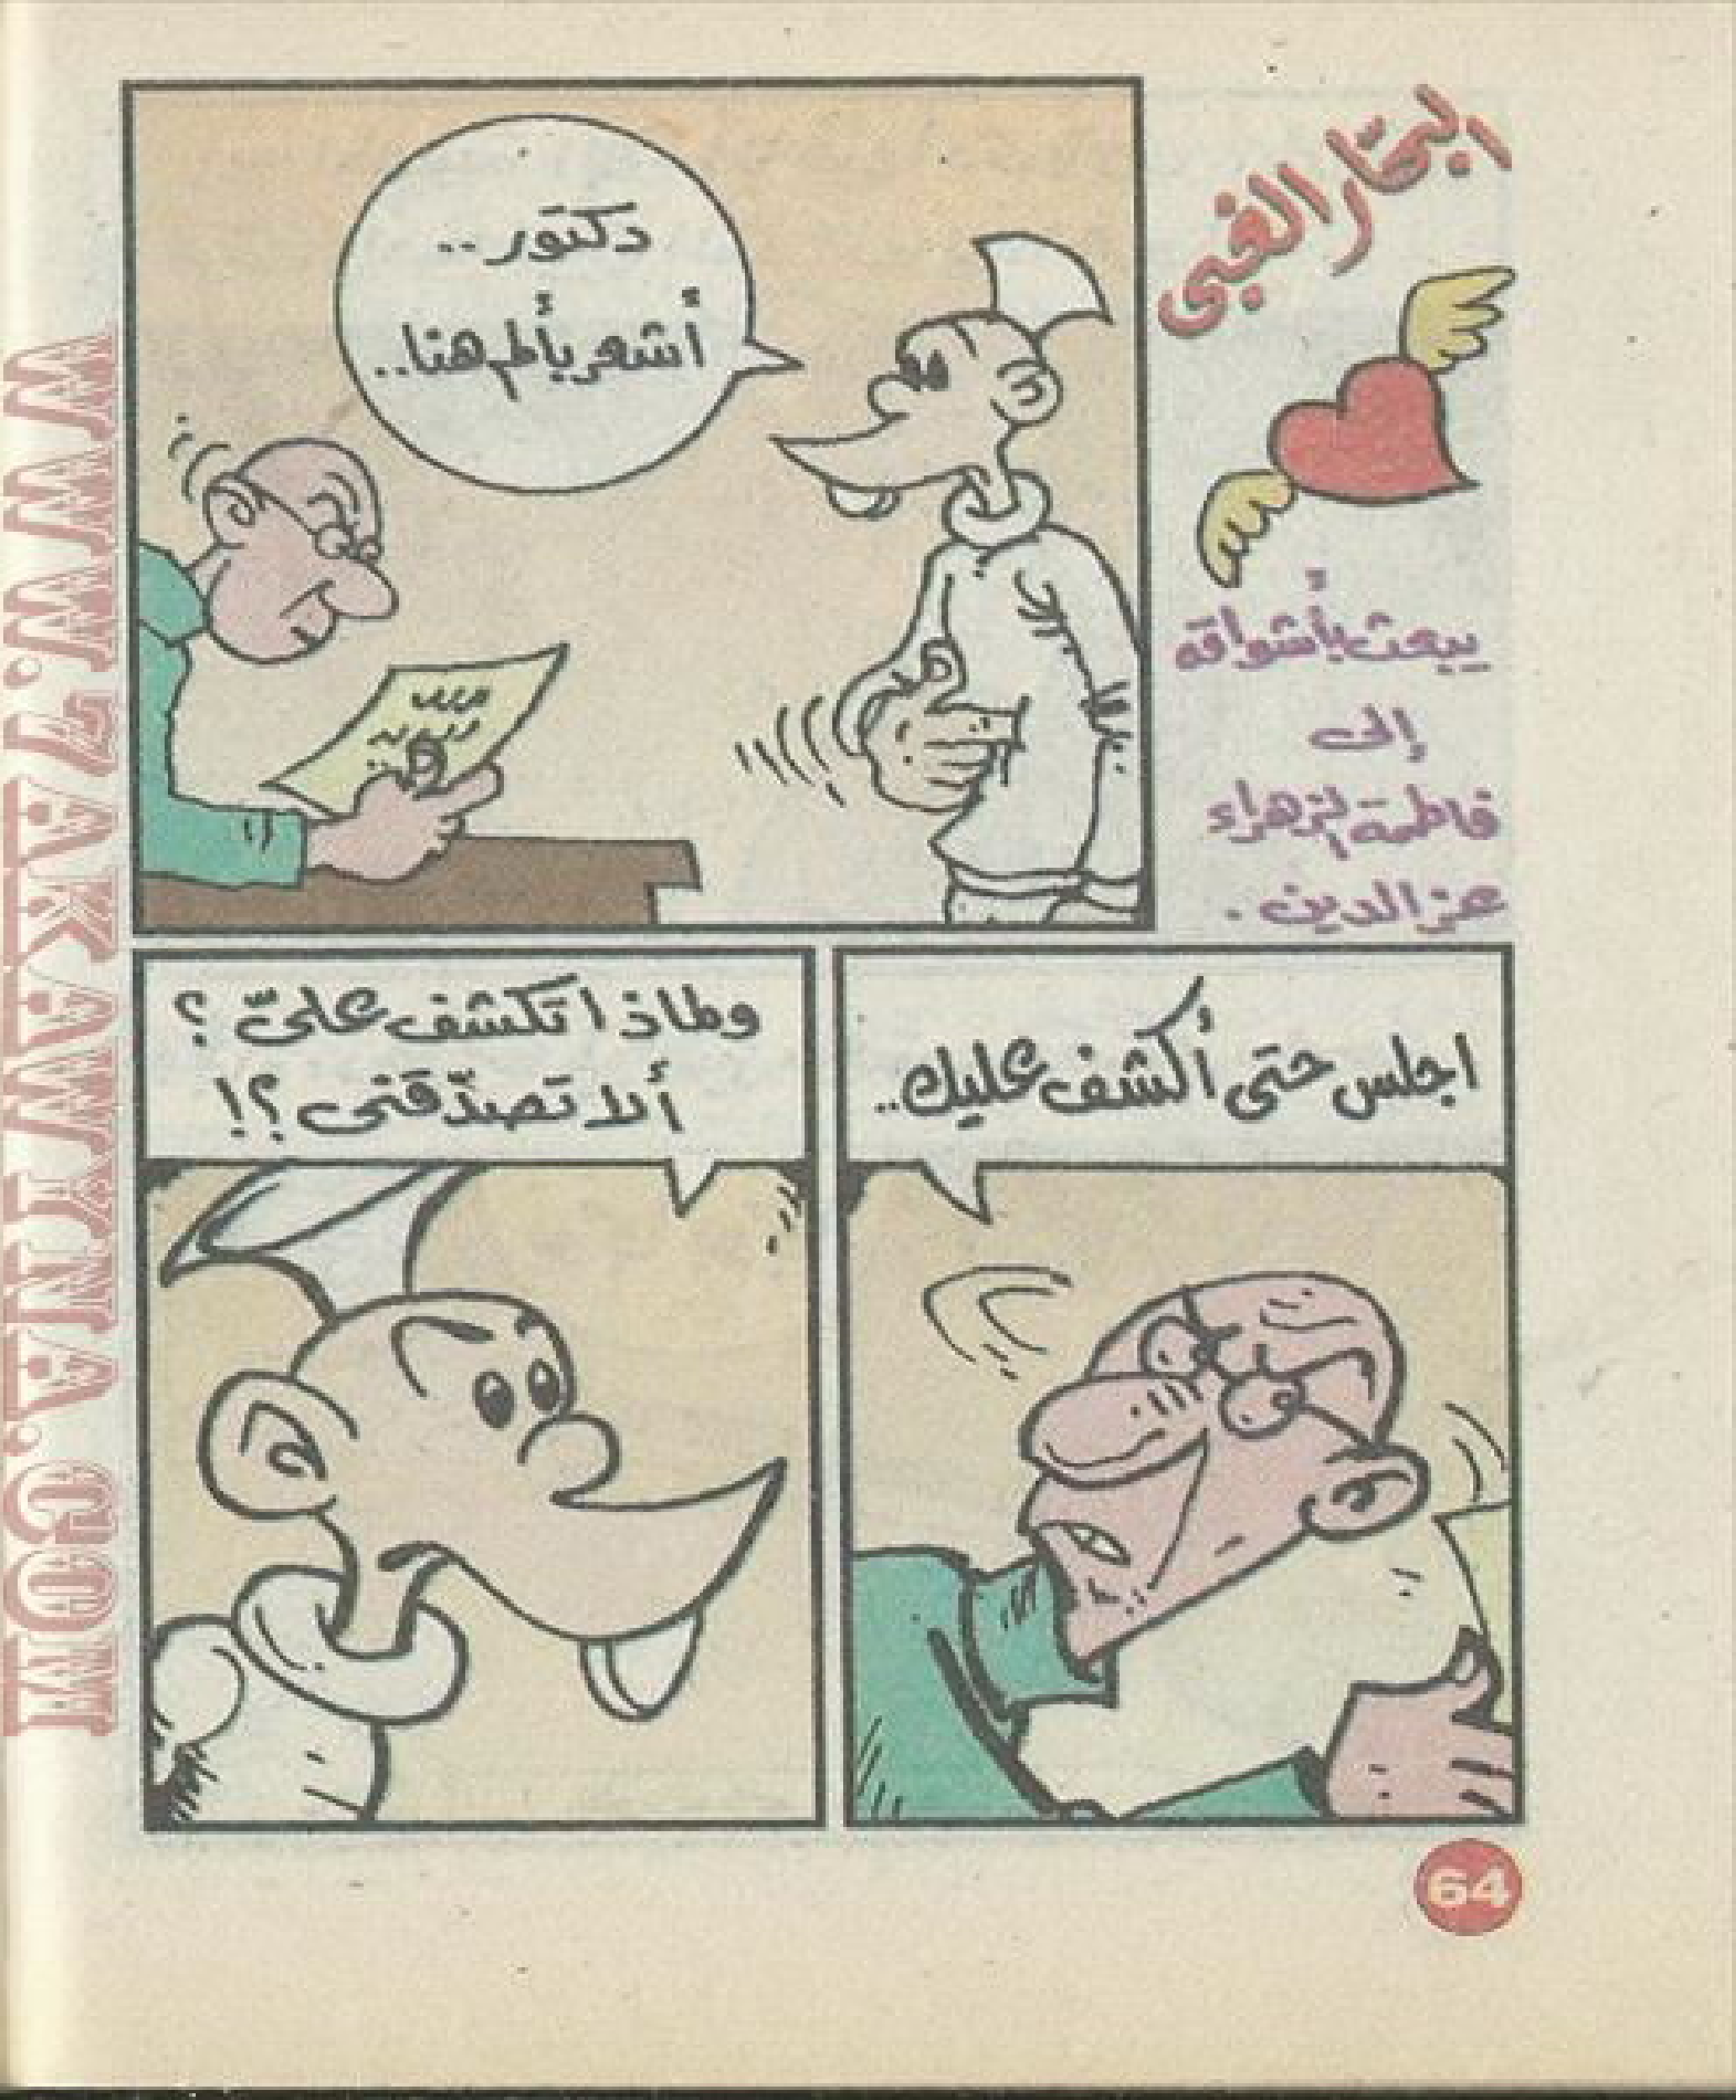 البحّار الغبي
يبعث بأشواقه
إلى
فاطمة الزهراء
عز الدين.
دكتور..
أشعر بألم هنا..
اجلس حتى أكشف عليك..
ولماذا تكشف عليّ؟
ألا تصدّقني؟!
64
WWW.7AKAWITNA.COM